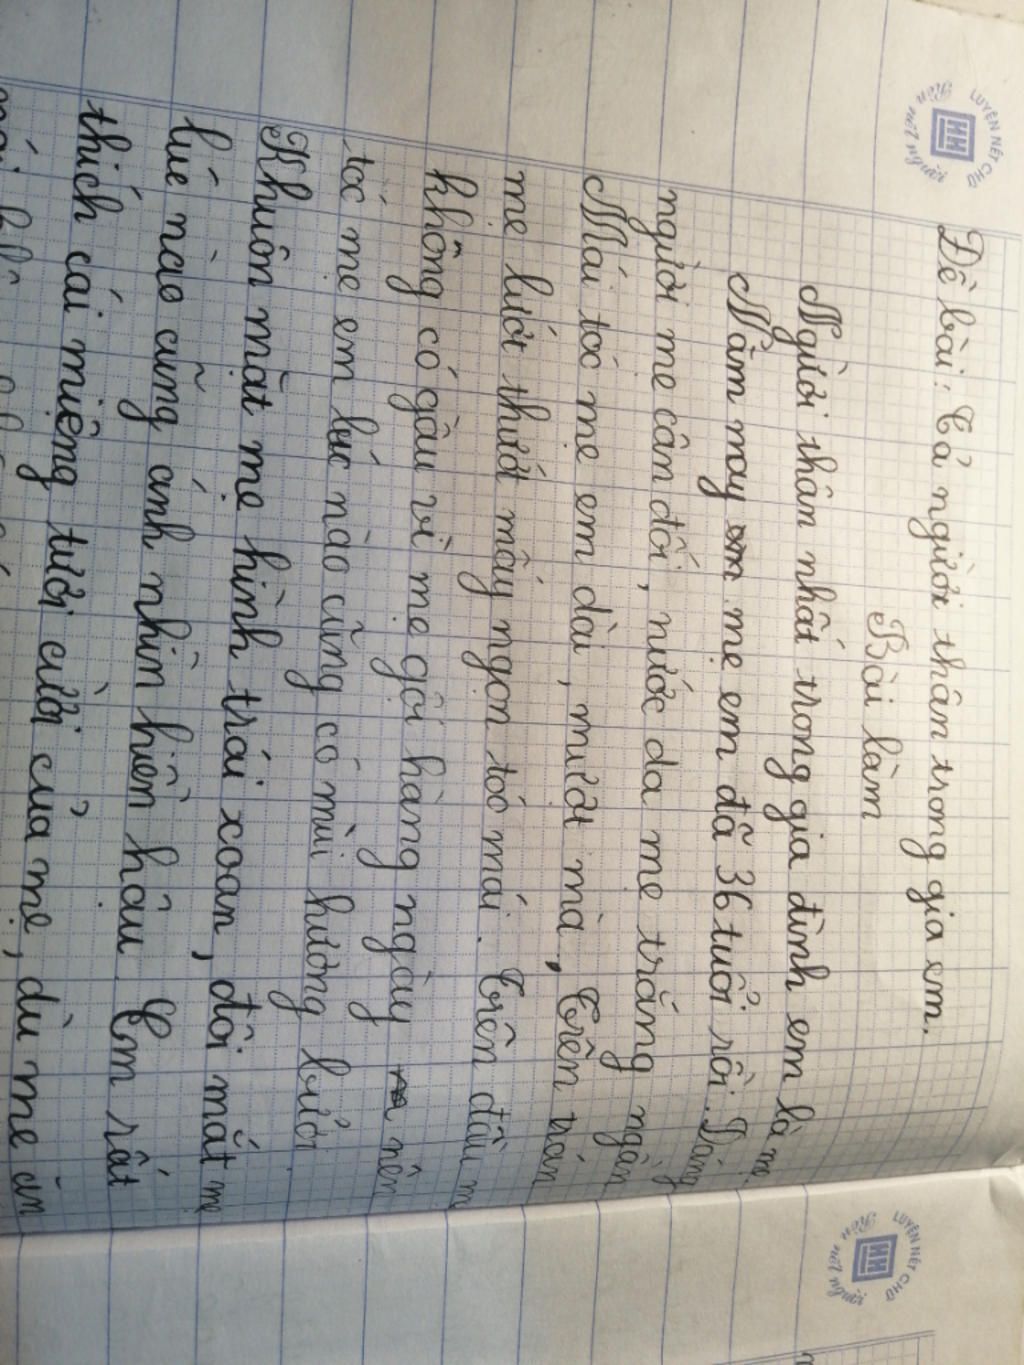 LUYỆN NÉT CHỮ
Rèn nết người
Đề bài: Tả người thân trong gia em.
Bài làm
Người thân nhất trong gia đình em là mẹ.
Năm nay mẹ em đã 36 tuổi rồi. Dáng
người mẹ cân đối, nước da mẹ trắng ngần
Mái toć mẹ em dài, mượt mà, Trên trán
mẹ lướt thướt mấy ngọn tóc mái. Trên đầu mẹ
không có gầu vì mẹ gội hàng ngày nên
tóc mẹ em lúc nào cũng có mùi hương bưởi.
Khuôn mặt mẹ hình trái xoan, đôi mắt mẹ
lúc nào cũng ánh nhìn hiền hậu. Em rất
thích cái miệng tười cười của mẹ, dù mẹ ăn
LUYỆN NÉT CHỮ
Rèn nết người